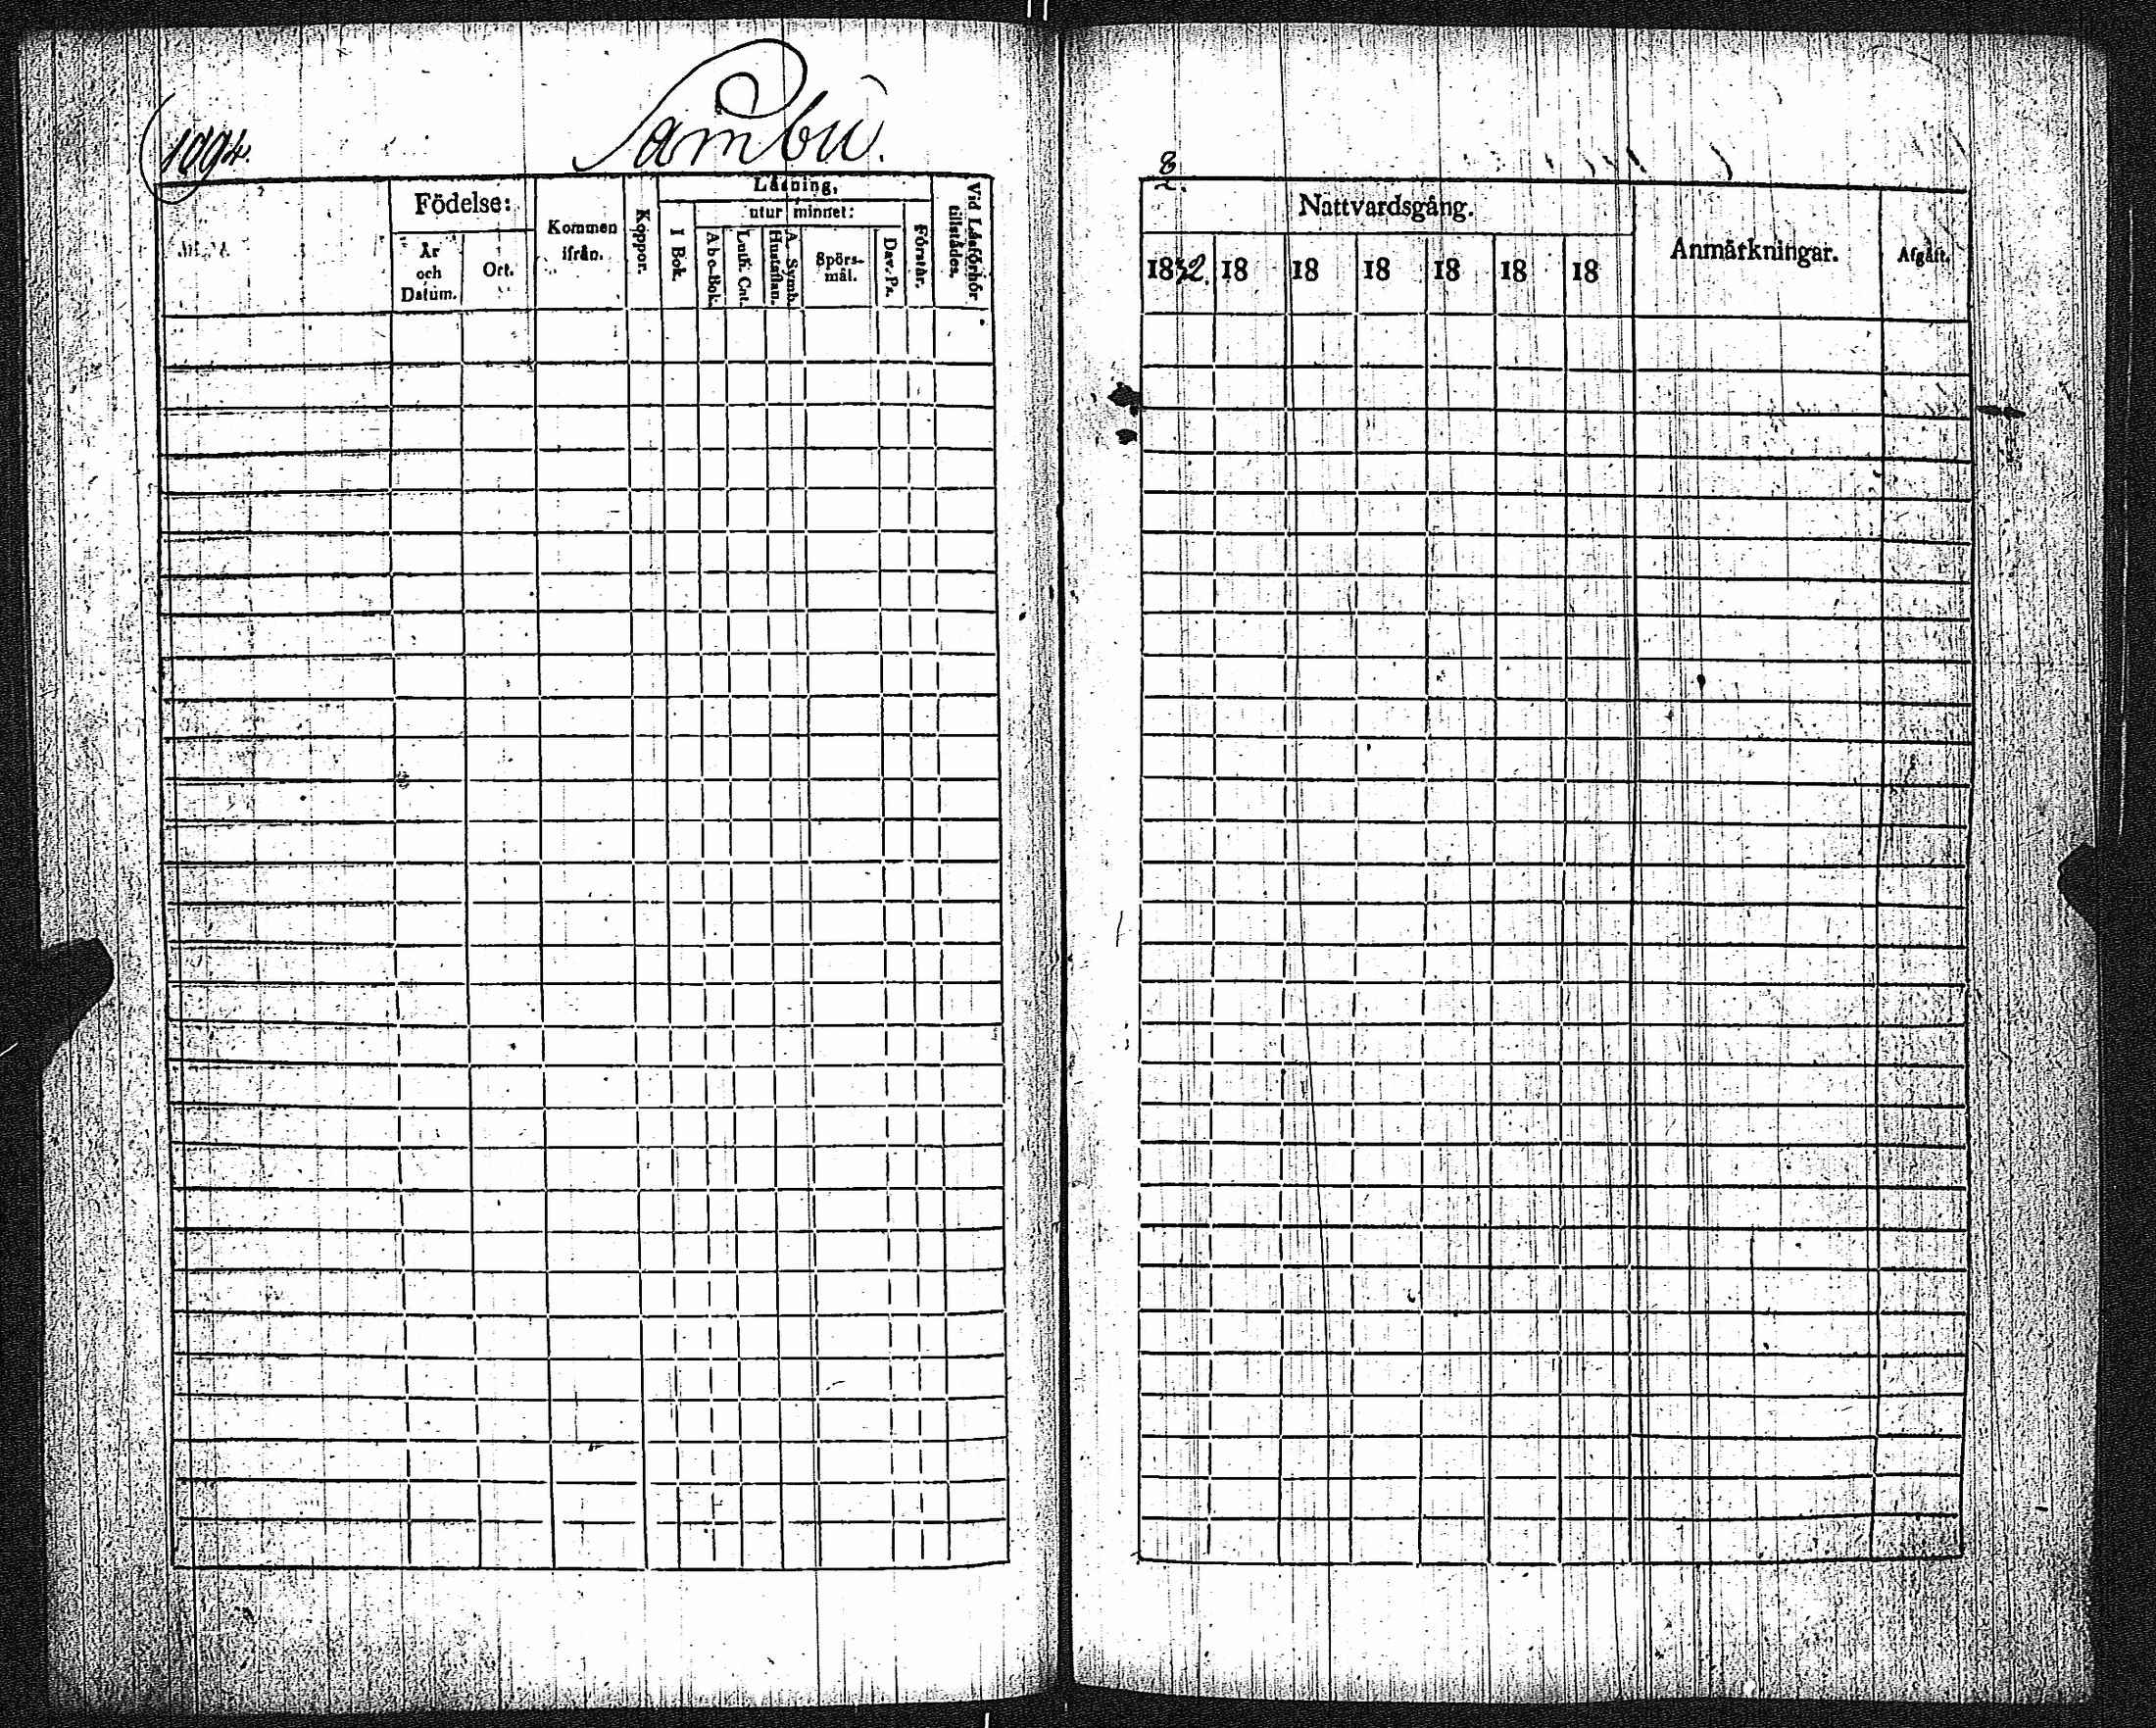 1094.
Sambu.
Födelse:
År och Datum.
Ort.
Kommen ifrån.
Koppor.
Läsning,
I Bok.
utur minnet:
Abc-Bok.
Luth. Cat.
A. Symb. Hustaflan.
Spörs-mål.
Dav. Ps.
Förstår.
Vid Läsförhör tillstädes.
8
Nattvardsgång.
1832.
18
18
18
18
18
18
Anmärkningar.
Afgått.